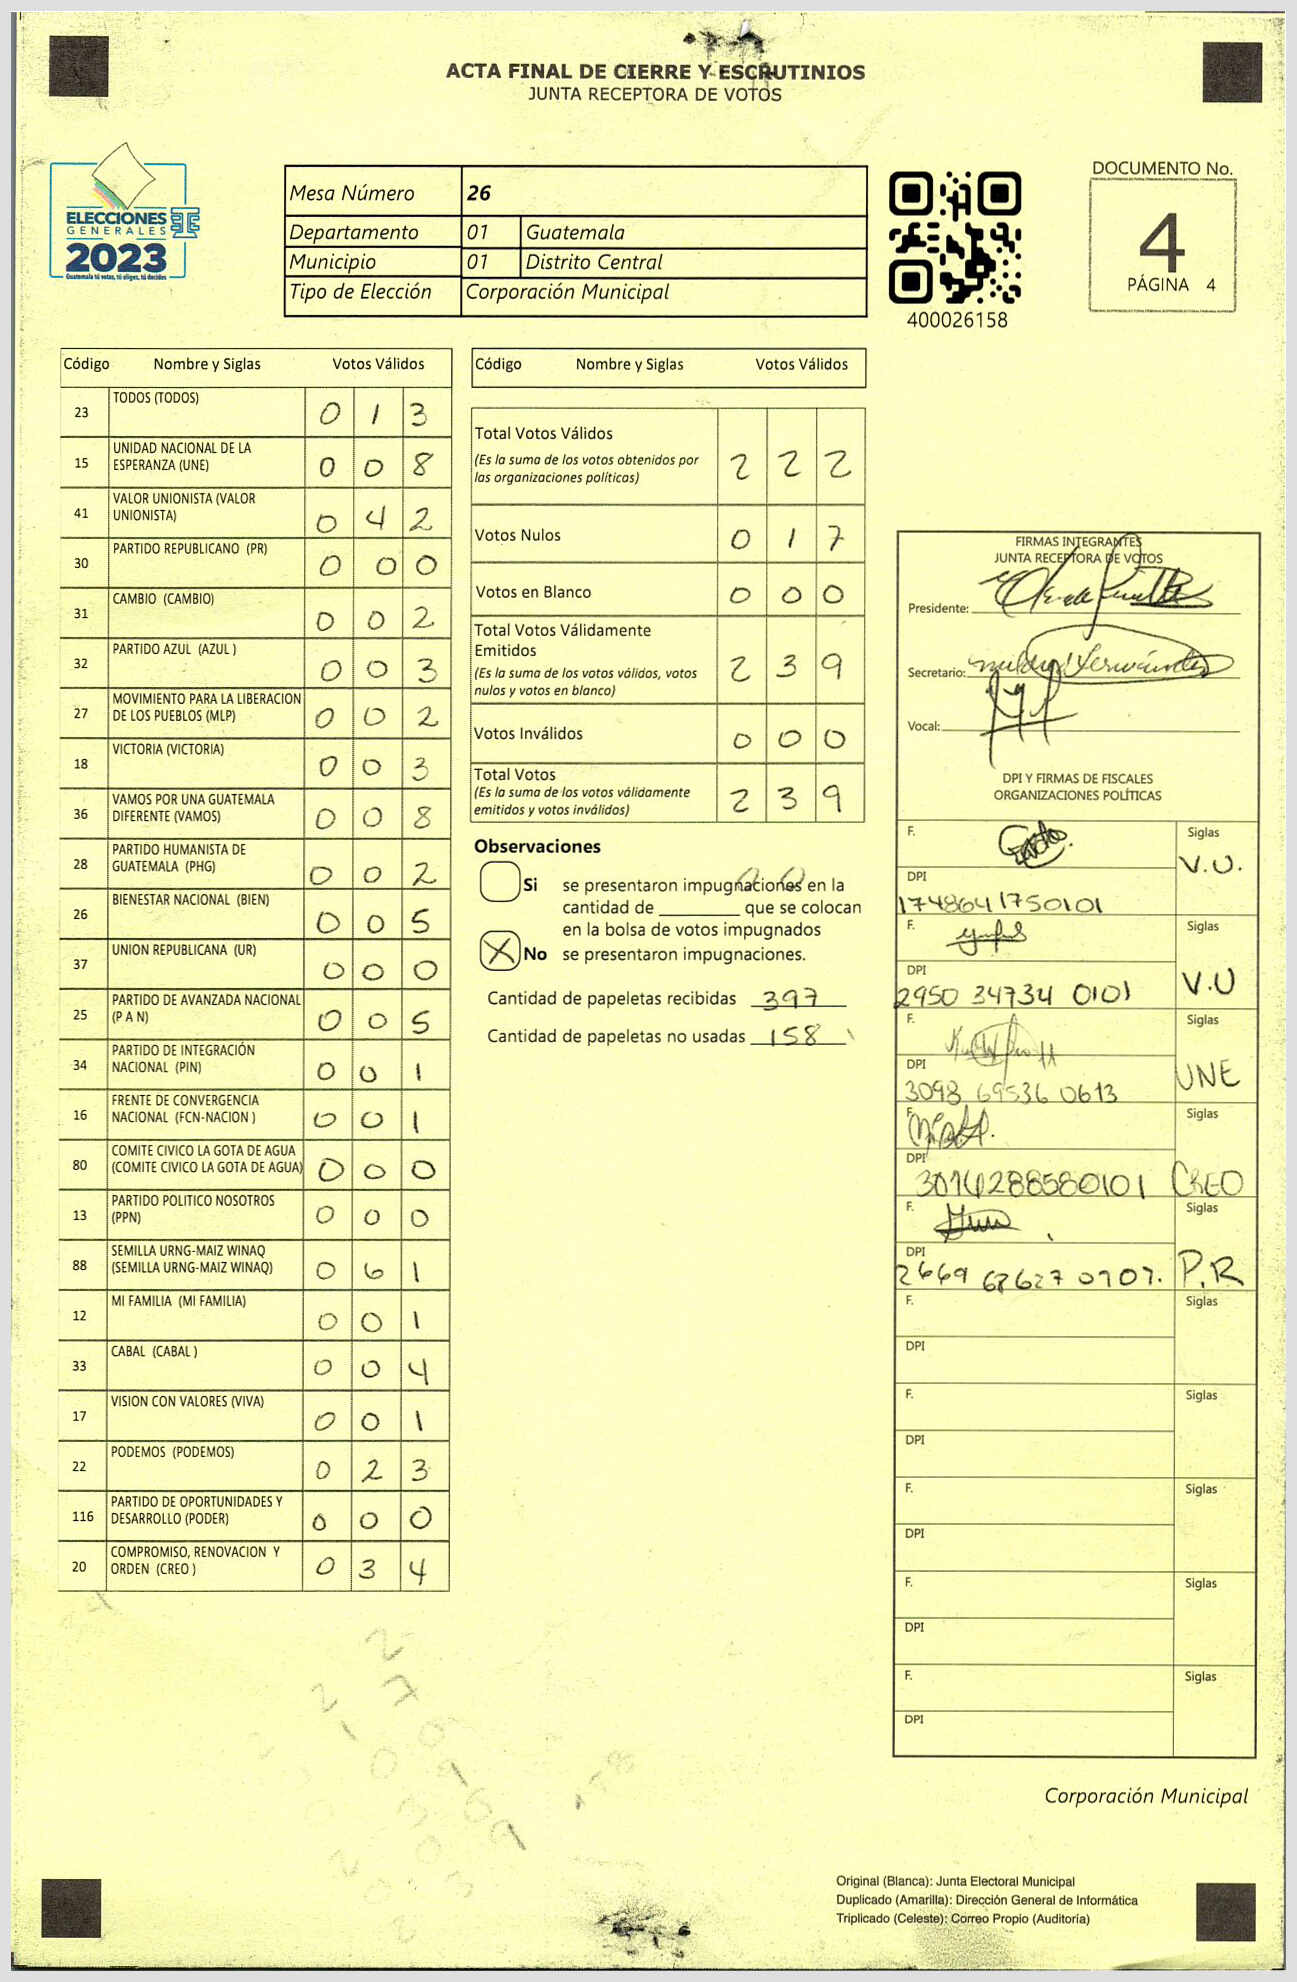 ACTA FINAL DE CIERRE Y ESCRUTINIOS
JUNTA RECEPTORA DE VOTOS
ELECCIONES
GENERALES
2023
Guatemala tú votas, tú eliges, tú decides
Mesa Número 26
Departamento 01 Guatemala
Municipio 01 Distrito Central
Tipo de Elección Corporación Municipal
400026158
DOCUMENTO No.
4
PÁGINA 4
Código Nombre y Siglas Votos Válidos
23 TODOS (TODOS) 0 1 3
15 UNIDAD NACIONAL DE LA ESPERANZA (UNE) 0 0 8
41 VALOR UNIONISTA (VALOR UNIONISTA) 0 4 2
30 PARTIDO REPUBLICANO (PR) 0 0 0
31 CAMBIO (CAMBIO) 0 0 2
32 PARTIDO AZUL (AZUL ) 0 0 3
27 MOVIMIENTO PARA LA LIBERACION DE LOS PUEBLOS (MLP) 0 0 2
18 VICTORIA (VICTORIA) 0 0 3
36 VAMOS POR UNA GUATEMALA DIFERENTE (VAMOS) 0 0 8
28 PARTIDO HUMANISTA DE GUATEMALA (PHG) 0 0 2
26 BIENESTAR NACIONAL (BIEN) 0 0 5
37 UNION REPUBLICANA (UR) 0 0 0
25 PARTIDO DE AVANZADA NACIONAL (P A N) 0 0 5
34 PARTIDO DE INTEGRACIÓN NACIONAL (PIN) 0 0 1
16 FRENTE DE CONVERGENCIA NACIONAL (FCN-NACION ) 0 0 1
80 COMITE CIVICO LA GOTA DE AGUA (COMITE CIVICO LA GOTA DE AGUA) 0 0 0
13 PARTIDO POLITICO NOSOTROS (PPN) 0 0 0
88 SEMILLA URNG-MAIZ WINAQ (SEMILLA URNG-MAIZ WINAQ) 0 6 1
12 MI FAMILIA (MI FAMILIA) 0 0 1
33 CABAL (CABAL ) 0 0 4
17 VISION CON VALORES (VIVA) 0 0 1
22 PODEMOS (PODEMOS) 0 2 3
116 PARTIDO DE OPORTUNIDADES Y DESARROLLO (PODER) 0 0 0
20 COMPROMISO, RENOVACION Y ORDEN (CREO ) 0 3 4
Código Nombre y Siglas Votos Válidos
Total Votos Válidos 2 2 2
(Es la suma de los votos obtenidos por
las organizaciones políticas)
Votos Nulos 0 1 7
Votos en Blanco 0 0 0
Total Votos Válidamente
Emitidos 2 3 9
(Es la suma de los votos válidos, votos
nulos y votos en blanco)
Votos Inválidos 0 0 0
Total Votos 2 3 9
(Es la suma de los votos válidamente
emitidos y votos inválidos)
Observaciones
Si se presentaron impugnaciones en la
cantidad de ________ que se colocan
en la bolsa de votos impugnados
X No se presentaron impugnaciones.
Cantidad de papeletas recibidas 397
Cantidad de papeletas no usadas 158
FIRMAS INTEGRANTES
JUNTA RECEPTORA DE VOTOS
Presidente:
Secretario:
Vocal:
DPI Y FIRMAS DE FISCALES
ORGANIZACIONES POLÍTICAS
F. Siglas V.U.
DPI
1748641750101
F. Siglas V.U
DPI
2950 34734 0101
F. Siglas UNE
DPI
3098 69536 0613
F. Siglas CREO
DPI
3014288580101
F. Siglas P.R
DPI
2669 68627 0707.
F. Siglas
DPI
F. Siglas
DPI
F. Siglas
DPI
F. Siglas
DPI
F. Siglas
DPI
Corporación Municipal
Original (Blanca): Junta Electoral Municipal
Duplicado (Amarilla): Dirección General de Informática
Triplicado (Celeste): Correo Propio (Auditoría)